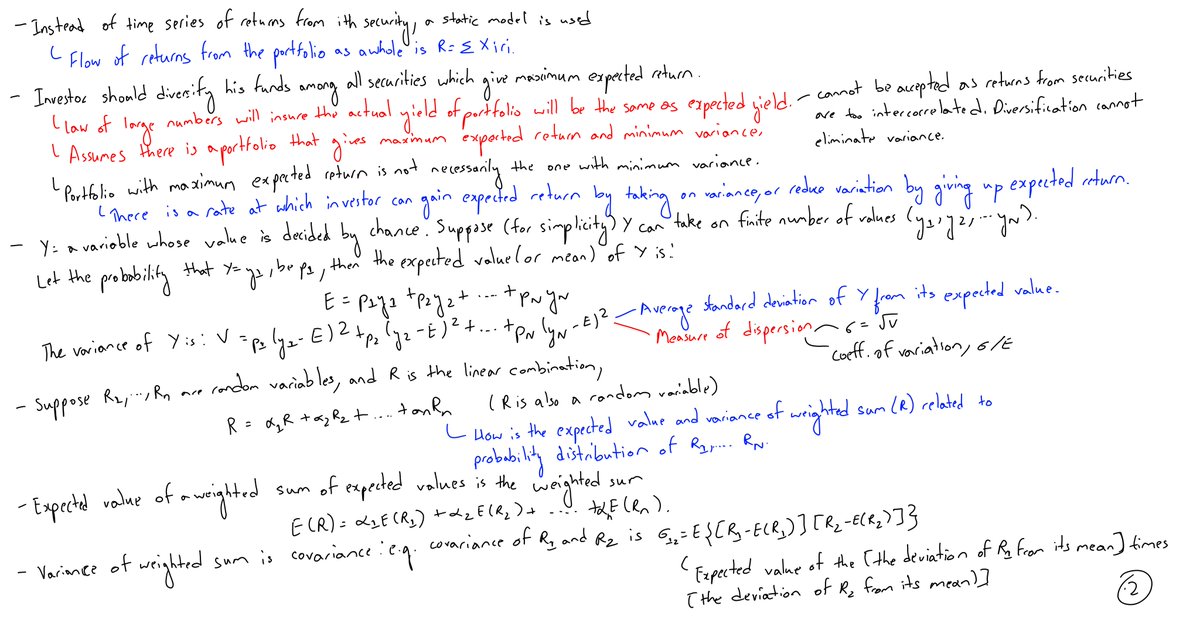 - Instead of time series of returns from ith security, a static model is used
Flow of returns from the portfolio as a whole is R = Σ Xiri.
- Investor should diversify his funds among all securities which give maximum expected return.
law of large numbers will insure the actual yield of portfolio will be the same as expected yield. - cannot be accepted as returns from securities
are too intercorrelated. Diversification cannot
eliminate variance.
Assumes there is a portfolio that gives maximum expected return and minimum variance.
Portfolio with maximum expected return is not necessarily the one with minimum variance.
There is a rate at which investor can gain expected return by taking on variance, or reduce variation by giving up expected return.
- Y = a variable whose value is decided by chance. Suppose (for simplicity) Y can take on finite number of values (y1, y2, ... yN).
Let the probability that Y = y1, be p1, then the expected value (or mean) of Y is:
E = p1y1 + p2y2 + .... + pNyN
The variance of Y is: V = p1(y1 - E)² + p2(y2 - E)² + ... + pN(yN - E)²
Average standard deviation of Y from its expected value.
Measure of dispersion
σ = √V
coeff. of variation, σ/E
- Suppose R1, ..., Rn are random variables, and R is the linear combination,
R = α1R + α2R2 + .... + αnRn (R is also a random variable)
How is the expected value and variance of weighted sum (R) related to
probability distribution of R1, .... RN.
- Expected value of a weighted sum of expected values is the weighted sum
E(R) = α1E(R1) + α2E(R2) + .... + αnE(Rn).
- Variance of weighted sum is covariance: e.g. covariance of R1 and R2 is σ12 = E{[R1 - E(R1)][R2 - E(R2)]}
Expected value of the [the deviation of R1 from its mean] times
[the deviation of R2 from its mean)]
2